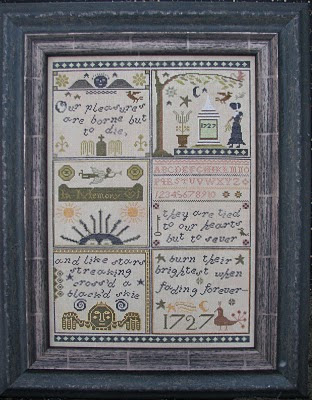 Our pleasures
are borne but
to die,
1727
Memory
ABCDEFGHIJKLMNO
PQRSTUVWXYZ
12345678910
they are tied
to our hearts
but to sever
and like stars
streaking
cross'd a
black'd skie
burn their
brightest when
fading forever—
1727